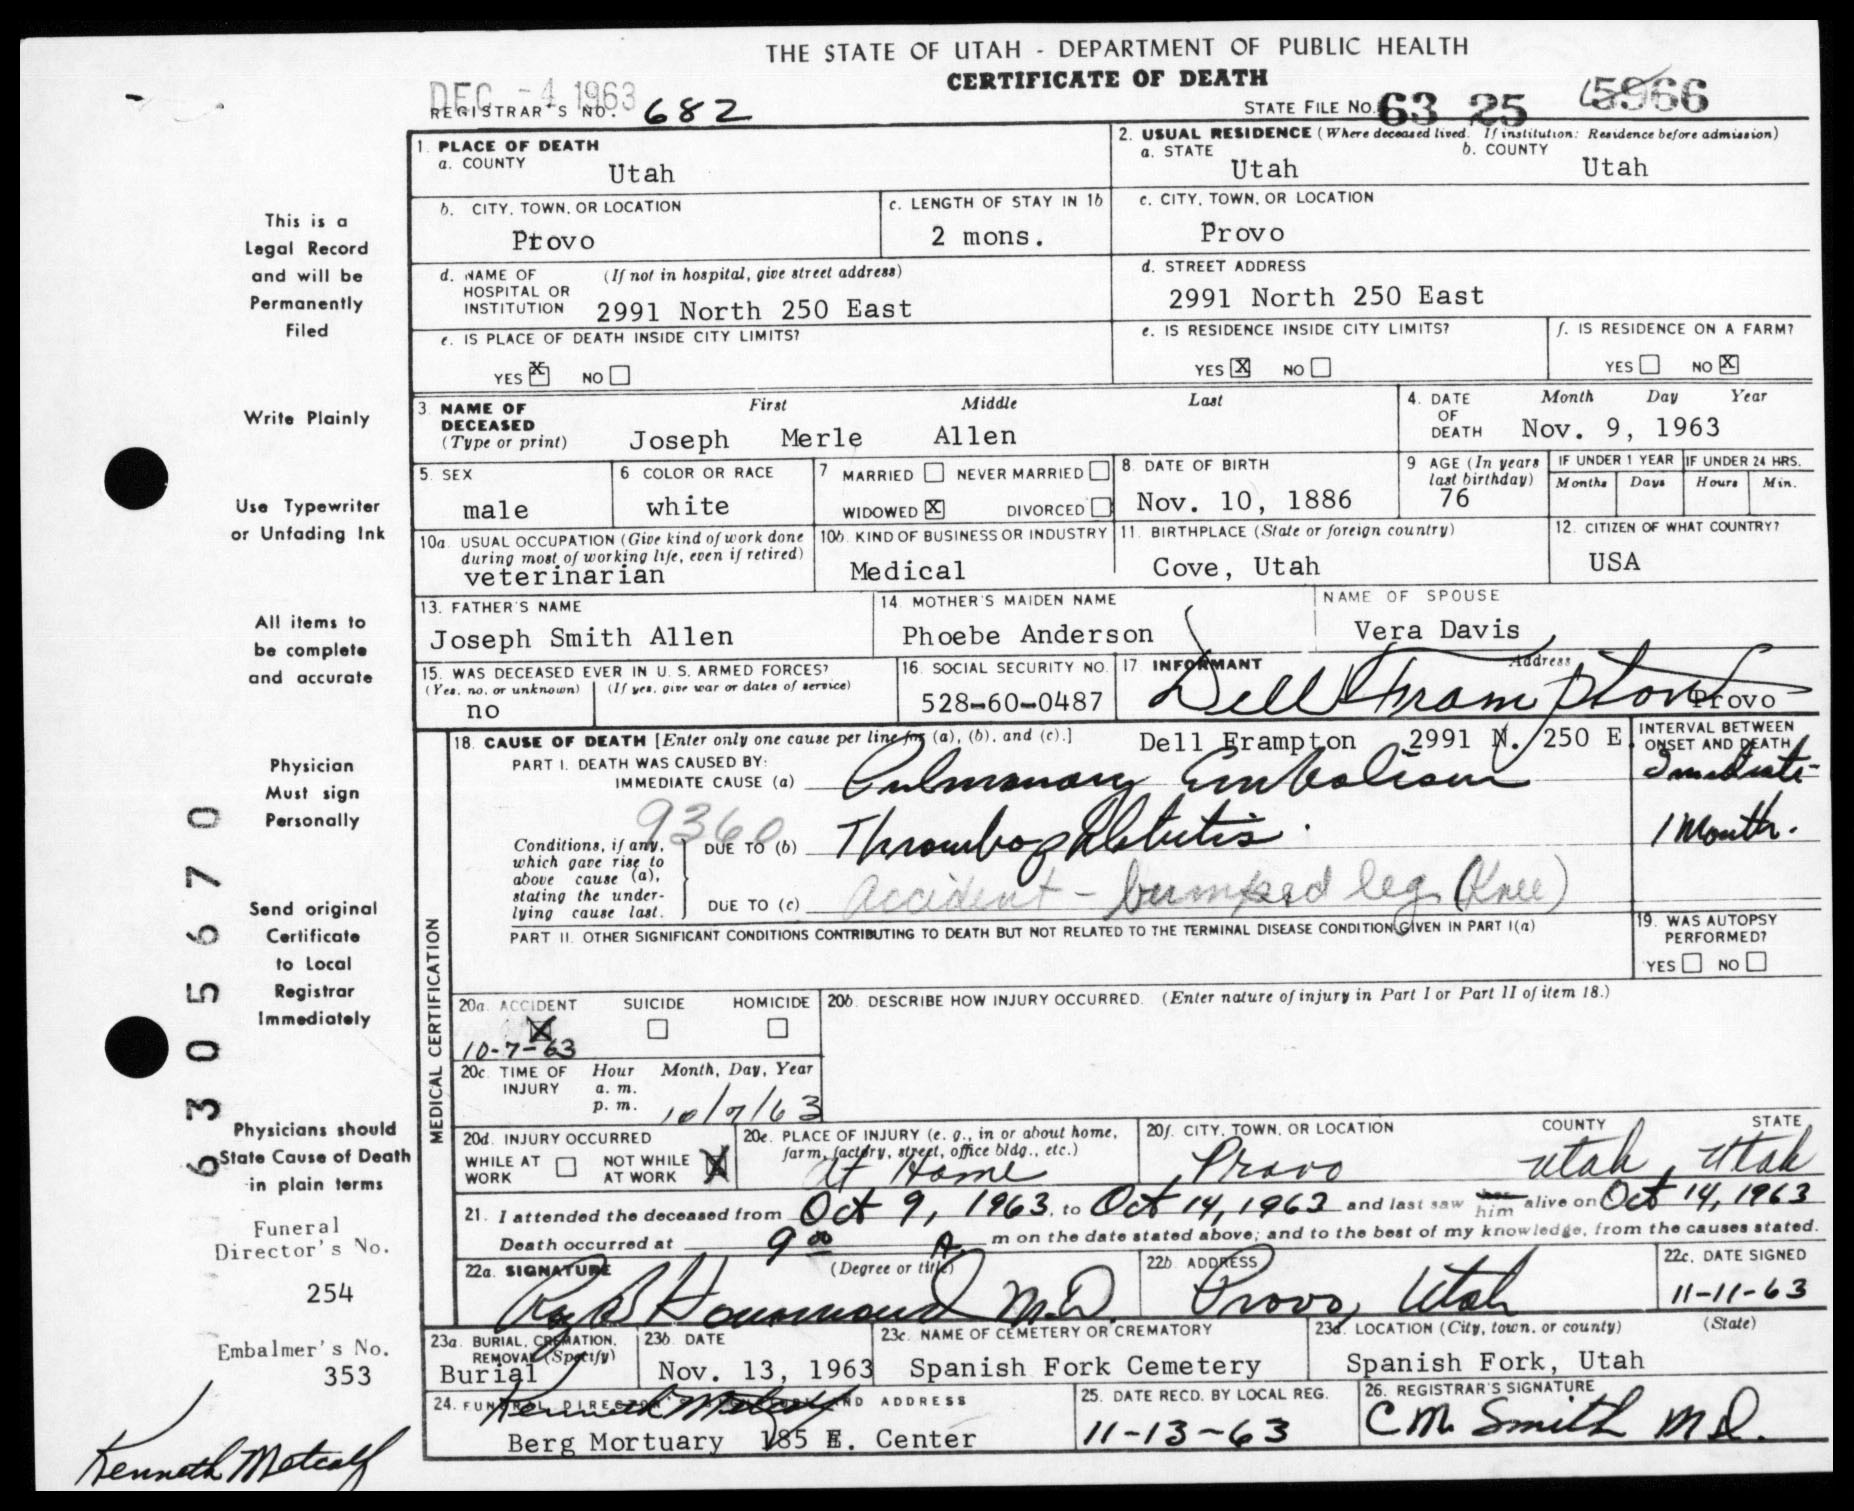 THE STATE OF UTAH - DEPARTMENT OF PUBLIC HEALTH
CERTIFICATE OF DEATH
DEC -4 1963
REGISTRAR'S NO. 682
STATE FILE NO. 63 25 5966
This is a
Legal Record
and will be
Permanently
Filed
Write Plainly
Use Typewriter
or Unfading Ink
All items to
be complete
and accurate
Physician
Must sign
Personally
Send original
Certificate
to Local
Registrar
Immediately
Physicians should
State Cause of Death
in plain terms
Funeral
Director's No.
254
Embalmer's No.
353
Kenneth Metcalf
6305670
1. PLACE OF DEATH
a. COUNTY Utah
2. USUAL RESIDENCE (Where deceased lived. If institution: Residence before admission)
a. STATE Utah b. COUNTY Utah
b. CITY, TOWN, OR LOCATION Provo
c. LENGTH OF STAY IN 1b 2 mons.
c. CITY, TOWN, OR LOCATION Provo
d. NAME OF HOSPITAL OR INSTITUTION (If not in hospital, give street address) 2991 North 250 East
d. STREET ADDRESS 2991 North 250 East
e. IS PLACE OF DEATH INSIDE CITY LIMITS?
YES X NO
e. IS RESIDENCE INSIDE CITY LIMITS?
YES X NO
f. IS RESIDENCE ON A FARM?
YES NO X
3. NAME OF DECEASED (Type or print) First Middle Last
Joseph Merle Allen
4. DATE OF DEATH Month Day Year
Nov. 9, 1963
5. SEX male
6 COLOR OR RACE white
7 MARRIED NEVER MARRIED
WIDOWED X DIVORCED
8. DATE OF BIRTH Nov. 10, 1886
9 AGE (In years last birthday) 76
IF UNDER 1 YEAR Months Days
IF UNDER 24 HRS. Hours Min.
10a. USUAL OCCUPATION (Give kind of work done during most of working life, even if retired)
veterinarian
10b. KIND OF BUSINESS OR INDUSTRY Medical
11. BIRTHPLACE (State or foreign country) Cove, Utah
12. CITIZEN OF WHAT COUNTRY? USA
13. FATHER'S NAME Joseph Smith Allen
14. MOTHER'S MAIDEN NAME Phoebe Anderson
NAME OF SPOUSE Vera Davis
15. WAS DECEASED EVER IN U. S. ARMED FORCES?
(Yes, no, or unknown) (If yes, give war or dates of service)
no
16. SOCIAL SECURITY NO. 528-60-0487
17. INFORMANT Address
Dell Frampton Provo
Dell Frampton 2991 N. 250 E.
18. CAUSE OF DEATH [Enter only one cause per line for (a), (b), and (c).]
INTERVAL BETWEEN ONSET AND DEATH
PART I. DEATH WAS CAUSED BY:
IMMEDIATE CAUSE (a) Pulmonary Embolism Immediate
9360
Conditions, if any, which gave rise to above cause (a), stating the underlying cause last.
DUE TO (b) Thrombophlebitis. 1 Month.
DUE TO (c) accident - bumped leg (Knee)
PART II. OTHER SIGNIFICANT CONDITIONS CONTRIBUTING TO DEATH BUT NOT RELATED TO THE TERMINAL DISEASE CONDITION GIVEN IN PART I(a)
19. WAS AUTOPSY PERFORMED?
YES NO
MEDICAL CERTIFICATION
20a. ACCIDENT SUICIDE HOMICIDE
X
10-7-63
20b. DESCRIBE HOW INJURY OCCURRED. (Enter nature of injury in Part I or Part II of item 18.)
20c. TIME OF INJURY Hour Month, Day, Year
a. m.
p. m. 10/7/63
20d. INJURY OCCURRED
WHILE AT WORK NOT WHILE AT WORK X
20e. PLACE OF INJURY (e. g., in or about home, farm, factory, street, office bldg., etc.)
At Home
20f. CITY, TOWN, OR LOCATION COUNTY STATE
Provo Utah, Utah
21. I attended the deceased from Oct 9, 1963, to Oct 14, 1963 and last saw her him alive on Oct 14, 1963
Death occurred at 9 00 A. m on the date stated above; and to the best of my knowledge, from the causes stated.
22a. SIGNATURE (Degree or title)
Roy B Hammond M.D.
22b. ADDRESS Provo, Utah
22c. DATE SIGNED 11-11-63
23a. BURIAL, CREMATION, REMOVAL (Specify) Burial
23b. DATE Nov. 13, 1963
23c. NAME OF CEMETERY OR CREMATORY Spanish Fork Cemetery
23d. LOCATION (City, town, or county) (State)
Spanish Fork, Utah
24. FUNERAL DIRECTOR'S SIGNATURE AND ADDRESS
Kenneth Metcalf
Berg Mortuary 185 E. Center
25. DATE RECD. BY LOCAL REG. 11-13-63
26. REGISTRAR'S SIGNATURE
C M. Smith M D.